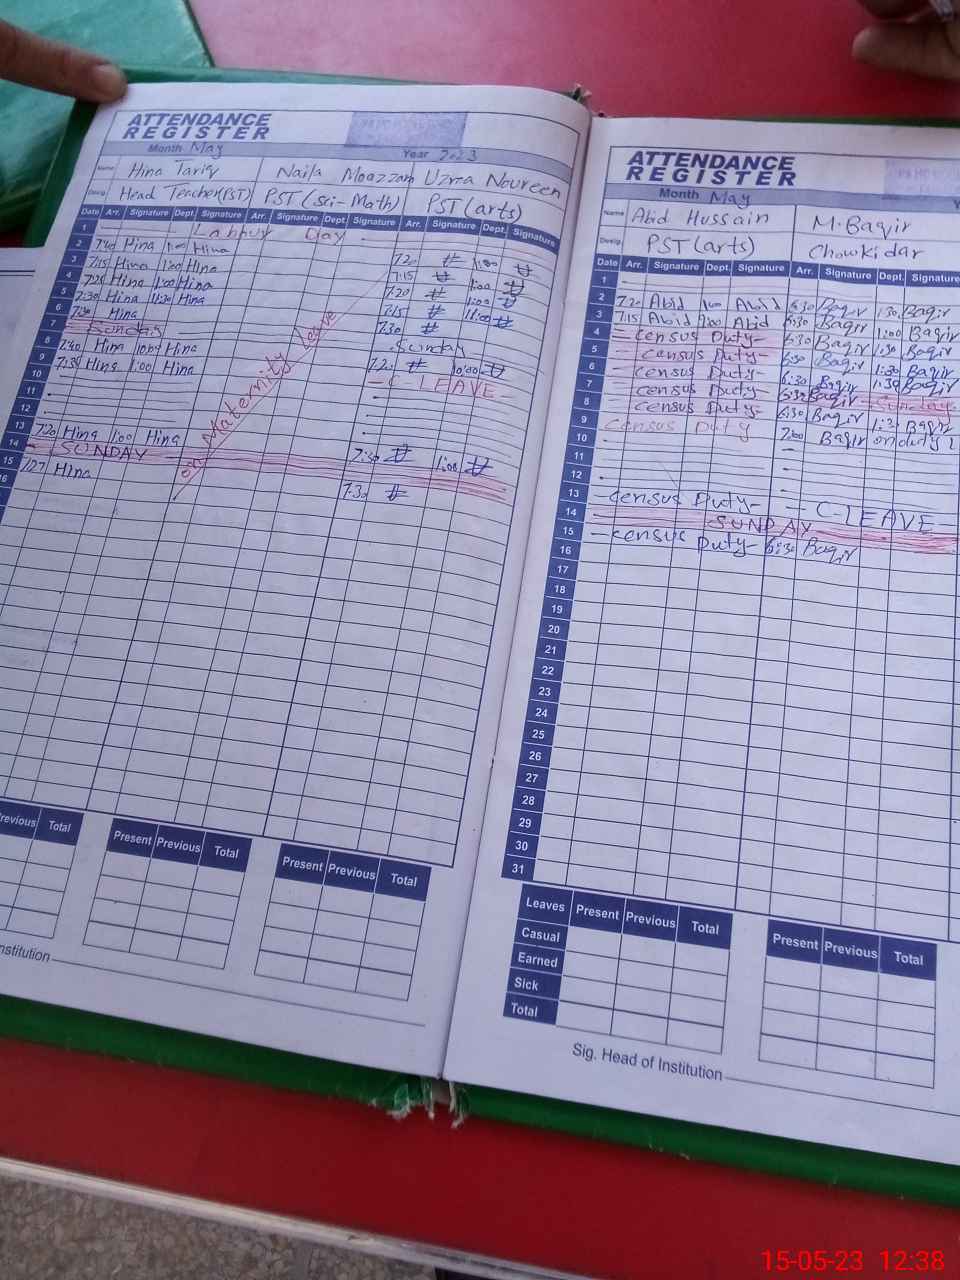 ATTENDANCE
REGISTER
Month May Year 2023
Name Hina Tariq Naila Moazzam Uzma Noureen
Desig. Head Teacher(PST) PST (Sci-Math) PST (arts)
Date Arr. Signature Dept. Signature Arr. Signature Dept. Signature Arr. Signature Dept. Signature
1 Labour Day
2 7:40 Hina 1:00 Hina 7:20 1:00
3 7:15 Hina 1:00 Hina 7:15 1:00
4 7:20 Hina 1:00 Hina 7:20 1:00
5 7:30 Hina 11:30 Hina 7:15 11:00
6 7:30 Hina 7:30
7 Sunday Sunday
8 7:40 Hina Hina 7:20 10:00
9 7:35 Hina 1:00 Hina C-LEAVE
10
11
12
13 7:20 Hina 1:00 Hina 7:30 1:00
14 SUNDAY
15 Hina 7:30
16
on Maternity Leave
Previous Total
Present Previous Total
Present Previous Total
nstitution
ATTENDANCE
REGISTER
Month May
Name Abid Hussain M. Baqir
Desig. PST (arts) Chowkidar
Date Arr. Signature Dept. Signature Arr. Signature Dept. Signature
1
2 7:20 Abid 1:00 Abid 6:30 Baqir 1:30 Baqir
3 7:15 Abid 1:00 Abid 6:30 Baqir 1:00 Baqir
4 Census Duty- 6:30 Baqir 1:30 Baqir
5 Census Duty- 6:30 Baqir 1:30 Baqir
6 Census Duty- 6:30 Baqir 1:30 Baqir
7 Census Duty- 6:30 Baqir Sunday
8 Census Duty- 6:30 Baqir 1:30 Baqir
9 Census Duty 7:00 Baqir on duty
10
11
12
13 -Census Duty- - C-LEAVE-
14 SUNDAY
15 -Census Duty- 6:30 Baqir
16
17
18
19
20
21
22
23
24
25
26
27
28
29
30
31
Leaves Present Previous Total
Casual
Earned
Sick
Total
Present Previous Total
Sig. Head of Institution
15-05-23 12:38